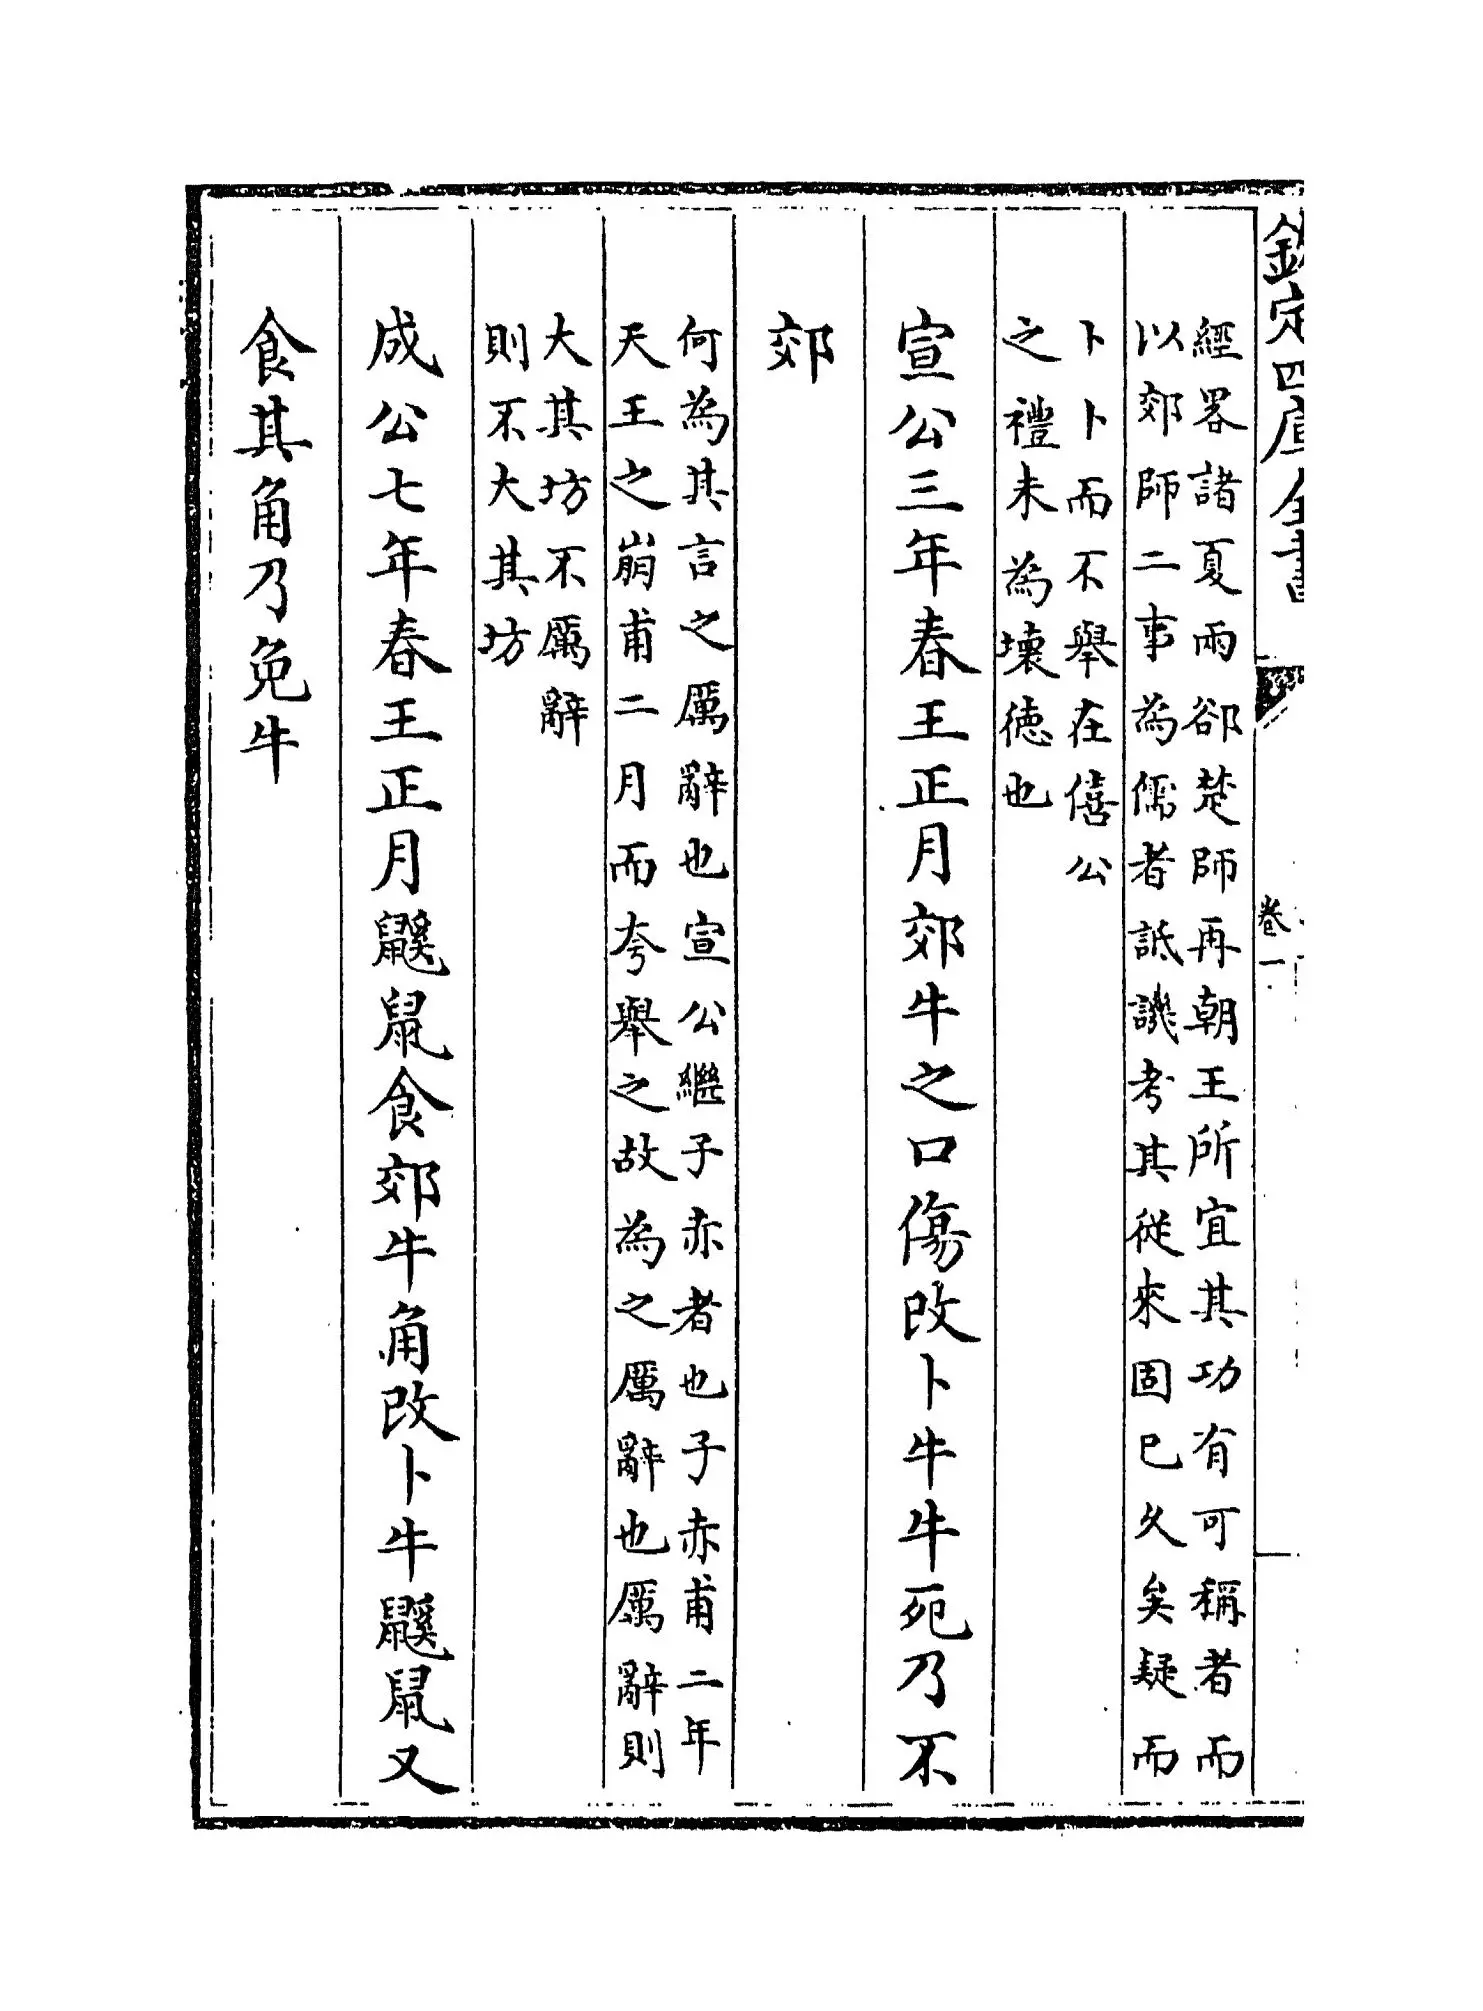 欽定四庫全書
卷一
經畧諸夏兩郤楚師再朝王所宜其功有可稱者而
以郊師二事為儒者詆譏考其從來固已久矣疑而
卜卜而不舉在僖公
之禮未為壞徳也
宣公三年春王正月郊牛之口傷改卜牛牛死乃不
郊
何為其言之厲辭也宣公繼子赤者也子赤甫二年
天王之崩甫二月而夸舉之故為之厲辭也厲辭則
大其坊不厲辭
則不大其坊
成公七年春王正月鼷鼠食郊牛角改卜牛鼷鼠又
食其角乃免牛